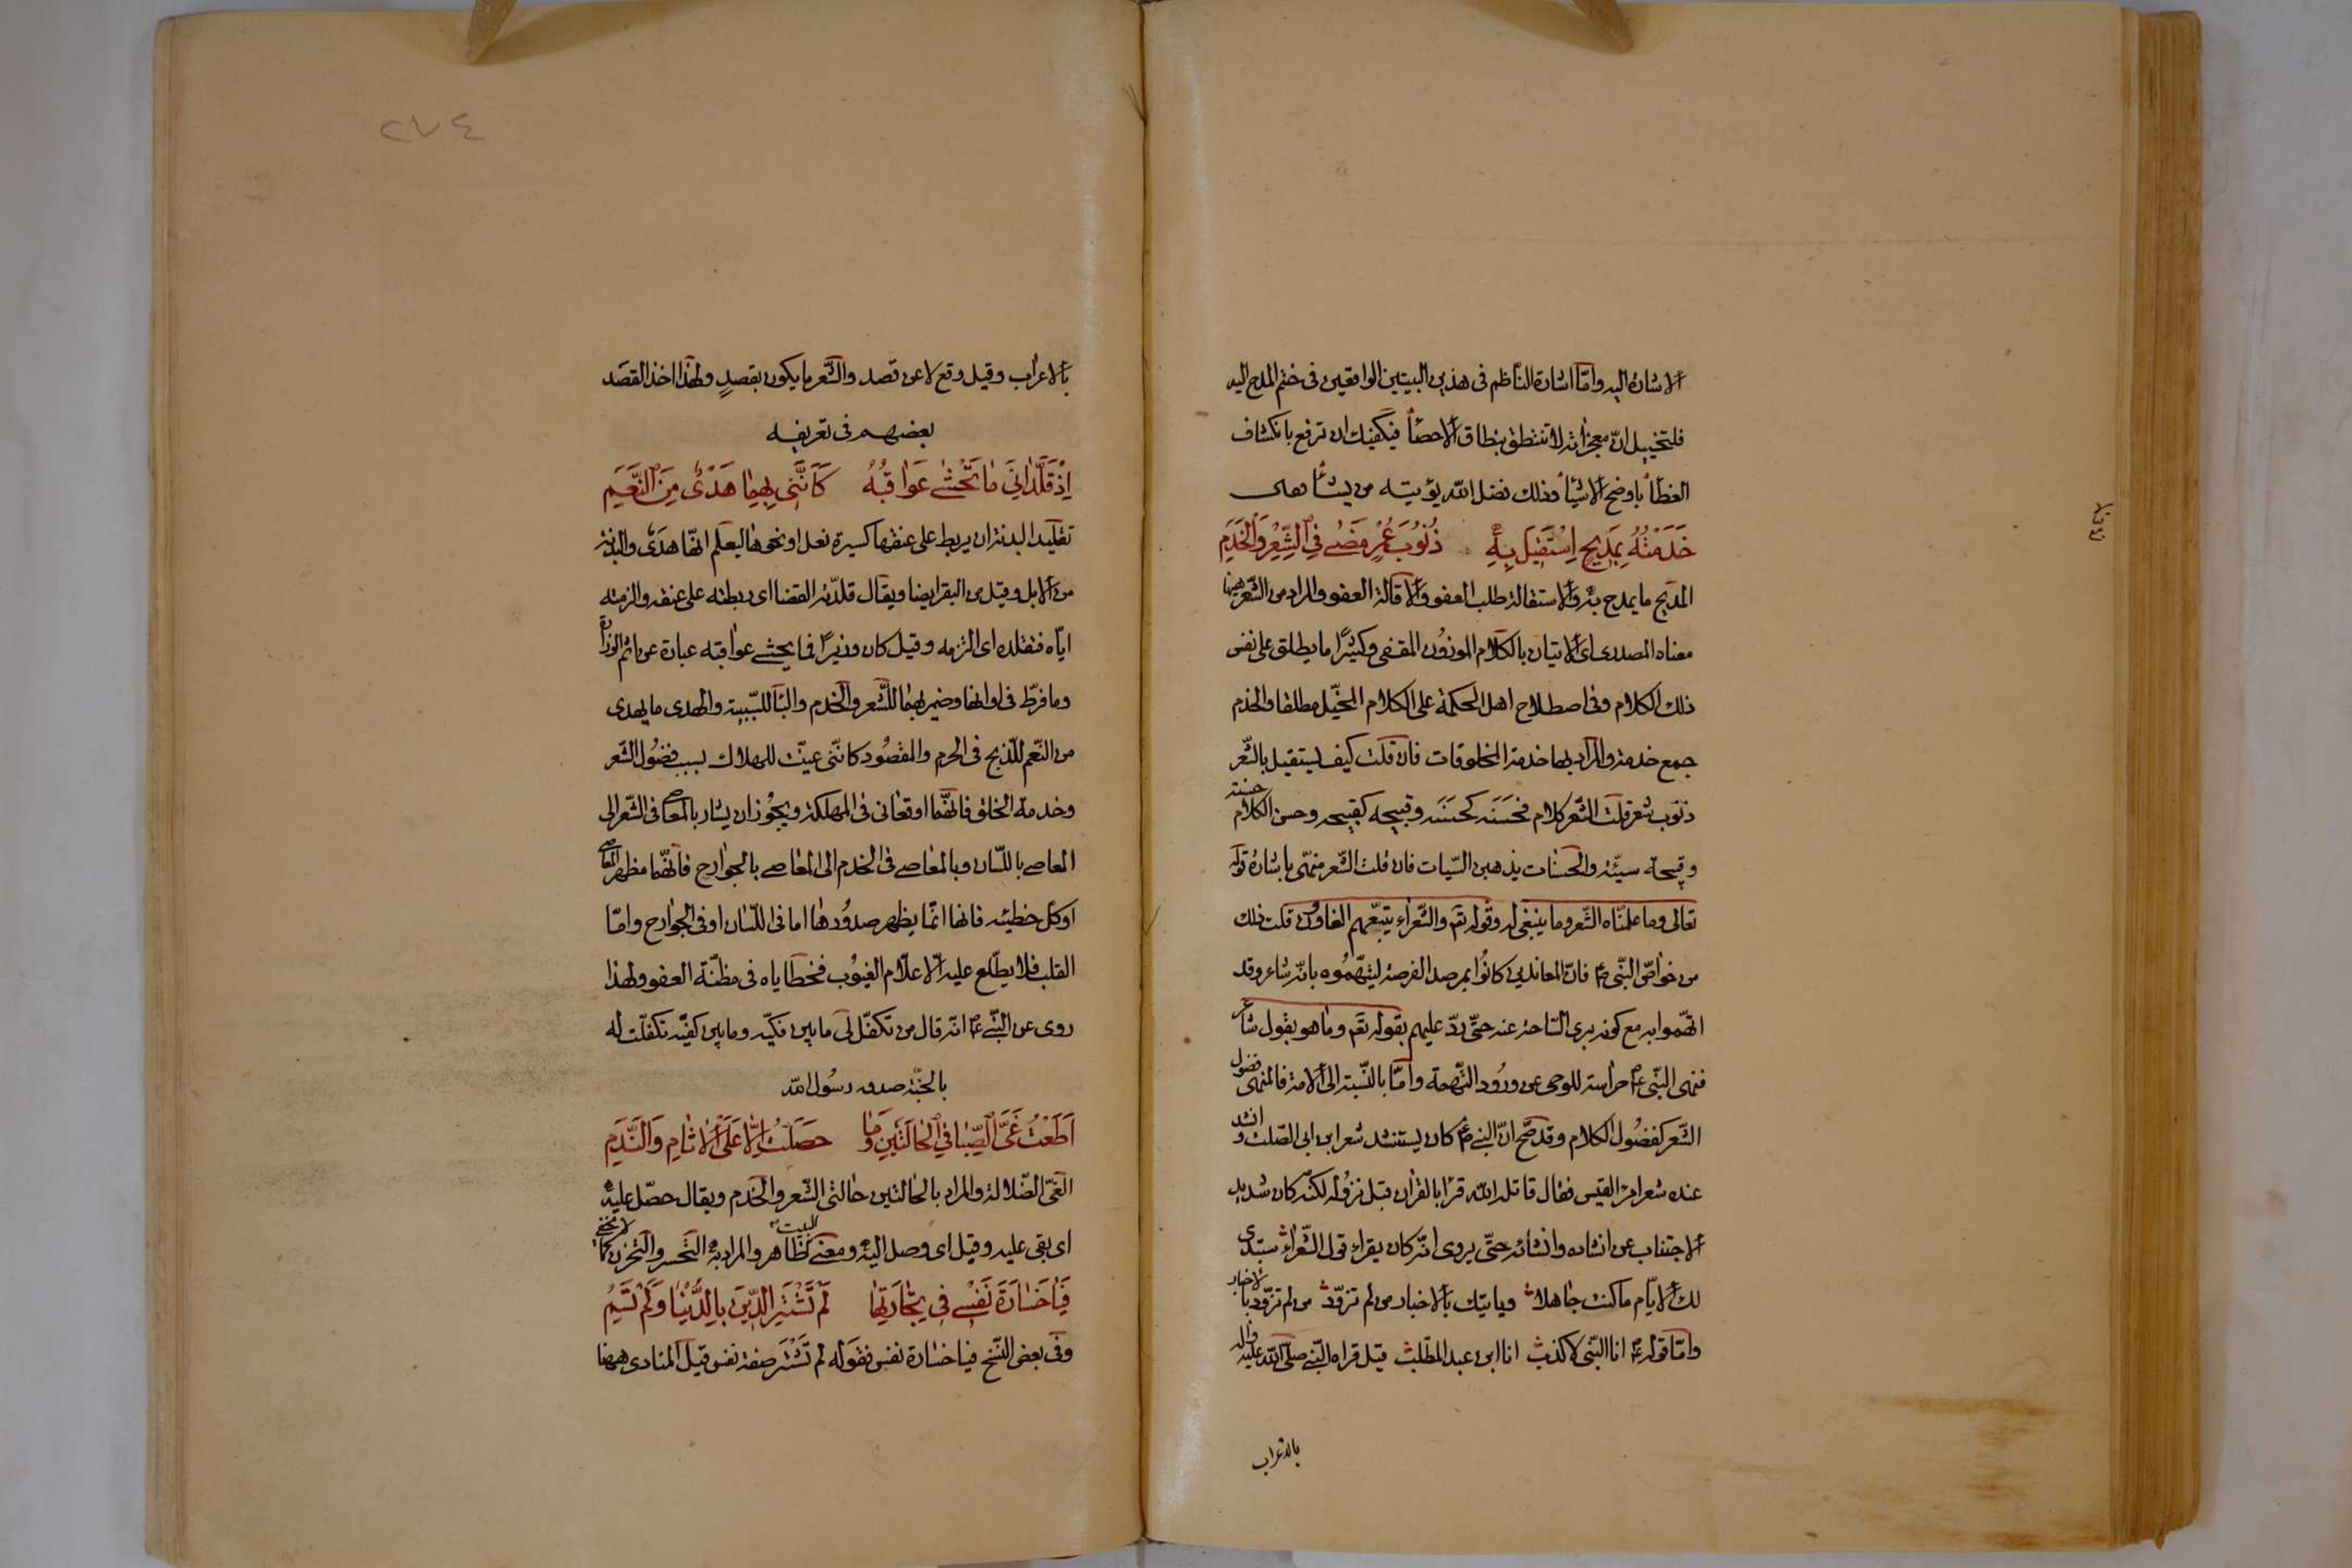 الاشارة اليه وامّا اشارة النّاظم فى هذين البيتين الواقعين فى ختم المدح اليه
فلتخييل انّ معجزاته لا تنتطق بنطاق الاحصاء فيكفيك ان ترفع بانكشاف
الغطاء باوضح الاشياء وذلك فضل الله يؤيته من يشاء وهى
خَدَمْتُهُ بِمَدِيحٍ اِسْتَقِيلُ بِهِ ذُنُوبَ عُمْرٍ مَضٰى فِي الشِّعْرِ وَالْخِدَمِ
المديح ما يمدح به والاستقالة طلب العفو والاقالة العفو والمراد من الشّعر ههنا
معناه المصدرى اى الاتيان بالكلام الموزون المقفى وكثيرًا ما يطلق على نفس
ذلك الكلام وفى اصطلاح اهل الحكمة على الكلام المخيّل مطلقا والخدم
جمع خدمة والمراد بها خدمة المخلوقات فان قلت كيف يستقيل بالشّعر
ذنوب شعر قلت الشّعر كلام فحسنه كحسنه وقبيحه كقبيحه وحسن الكلام حسنة
وقبيحه سيّئة والحسنات يذهبن السّيات فان قلت الشّعر منهىّ باشارة قوله
تعالى وما علمناه الشّعر وما ينبغى له وقوله تعَ والشّعراء يتبعهم الغاوون قلت ذلك
من خواصّ النّبى عم فانّ المعاندين كانوا بمرصد الفرصة ليتّهموه بانّه شاعر وقد
اتّهموا به مع كونه برى السّاحة عنه حتّى ردّ عليهم بقوله تعَ وما هو بقول شاعر
فنهى النّبى عم حراسة للوحى عن ورود التّهمة وامّا بالنّسبة الى الامة فالمنهى فضول
الشّعر كفضول الكلام وقد صحّ انّ النبى عم كان يستنشد شعر ابن ابى الصّلت وانشد
عنده شعر امرء القيس فقال قاتله الله قرا بالقران قبل نزوله لكنّه كان شديد
الاجتناب عن انشاده وانشائه حتّى يروى انّه كان يقراء قول الشّعراء ستبدى
لك الايّام ما كنت جاهلا ويايتك بالاخبار من لم تزوّد من لم تزوّد بالاخبار
وامّا قوله عم انا النّبى لا كذب انا ابن عبد المطّلب قيل قراه النّبى صلّى الله عليه واله
بالاعراب
٢٧٤
بالاعراب وقيل وقع لا عن قصد والشّعر ما يكون بقصدٍ ولهذا اخذ القصد
بعضهم فى تعريفه
اِذْ قَلَّدَانِيَ مَا تُخْشٰى عَوَاقِبُهُ كَاَنَّنِي بِهِمَا هَدْىٌ مِنَ النَّعَمِ
تقليد البدنة ان يربط على عنقها كسيرة نعل او نحوها ليعلم انّها هدى والبدنة
من الابل وقيل من البقر ايضا ويقال قلدته القضا اى ربطته على عنقه والزمته
ايّاه فتقلده اى التزمه وقيل كان وزيرًا فما يخشى عواقبه عبارة عن اثم الوزارة
وما فرّط فى اوانها وضمير بهما للشّعر والخدم والباء للسّببية والهدى ما يهدى
من النّعم للذّبح فى الحرم والمقصود كانّنى عيّنت للهلاك بسبب فضول الشّعر
وخدمة الخلق فانّهما اوقعانى فى المهلكة ويجوز ان يشار بالمعاصى فى الشّعر الى
المعاصى باللّسان وبالمعاصى فى الخدم الى المعاصى بالجوارح فانّهما مظهر المعاصى
اوكل خطيئه فانها انّما يظهر صدورها اما فى اللّسان او فى الجوارح وامّا
القلب فلا يطّلع عليه الّا علّام الغيوب فخطاياه فى مظنّة العفو ولهذا
روى عن النّبى عم انّه قال من تكفّل لى ما بين فكيّه وما بين كفيّه تكفّلت له
بالجنّة صدق رسول الله
اَطَعْتُ غَيَّ الصِّبَا فِي الْحَالَتَيْنِ وَمَا حَصَلْتُ اِلَّا عَلَى الْاٰثَامِ وَالنَّدَمِ
الغىّ الضّلالة والمراد بالحالتين حالتى الشّعر والخدم ويقال حصّل عليه
اى بقى عليه وقيل اى وصل اليه ومعنى البيت ظاهر والمراد به التّحسر والتحزن كما لا يخفى
فَيَا خَسَارَةَ نَفْسٍ فِي تِجَارَتِهَا لَمْ تَشْتَرِ الدِّينَ بِالدُّنْيَا وَلَمْ تَسُمِ
وفى بعض النّسخ فيا خسارة نفس فقوله لم تشتر صفة نفس قيل المنادى ههنا